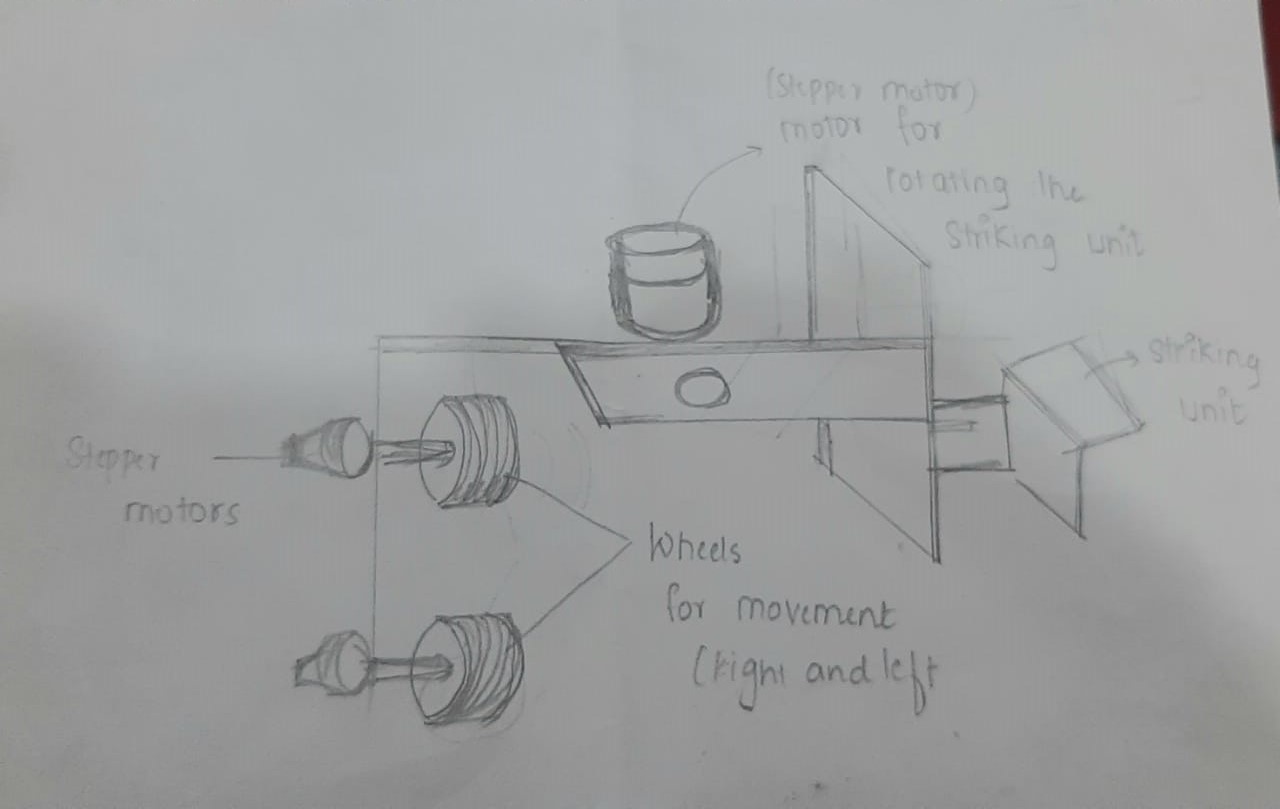 (Stepper motor)
motor for
rotating the
striking unit
striking
unit
Stepper
motors
Wheels
for movement
(right and left